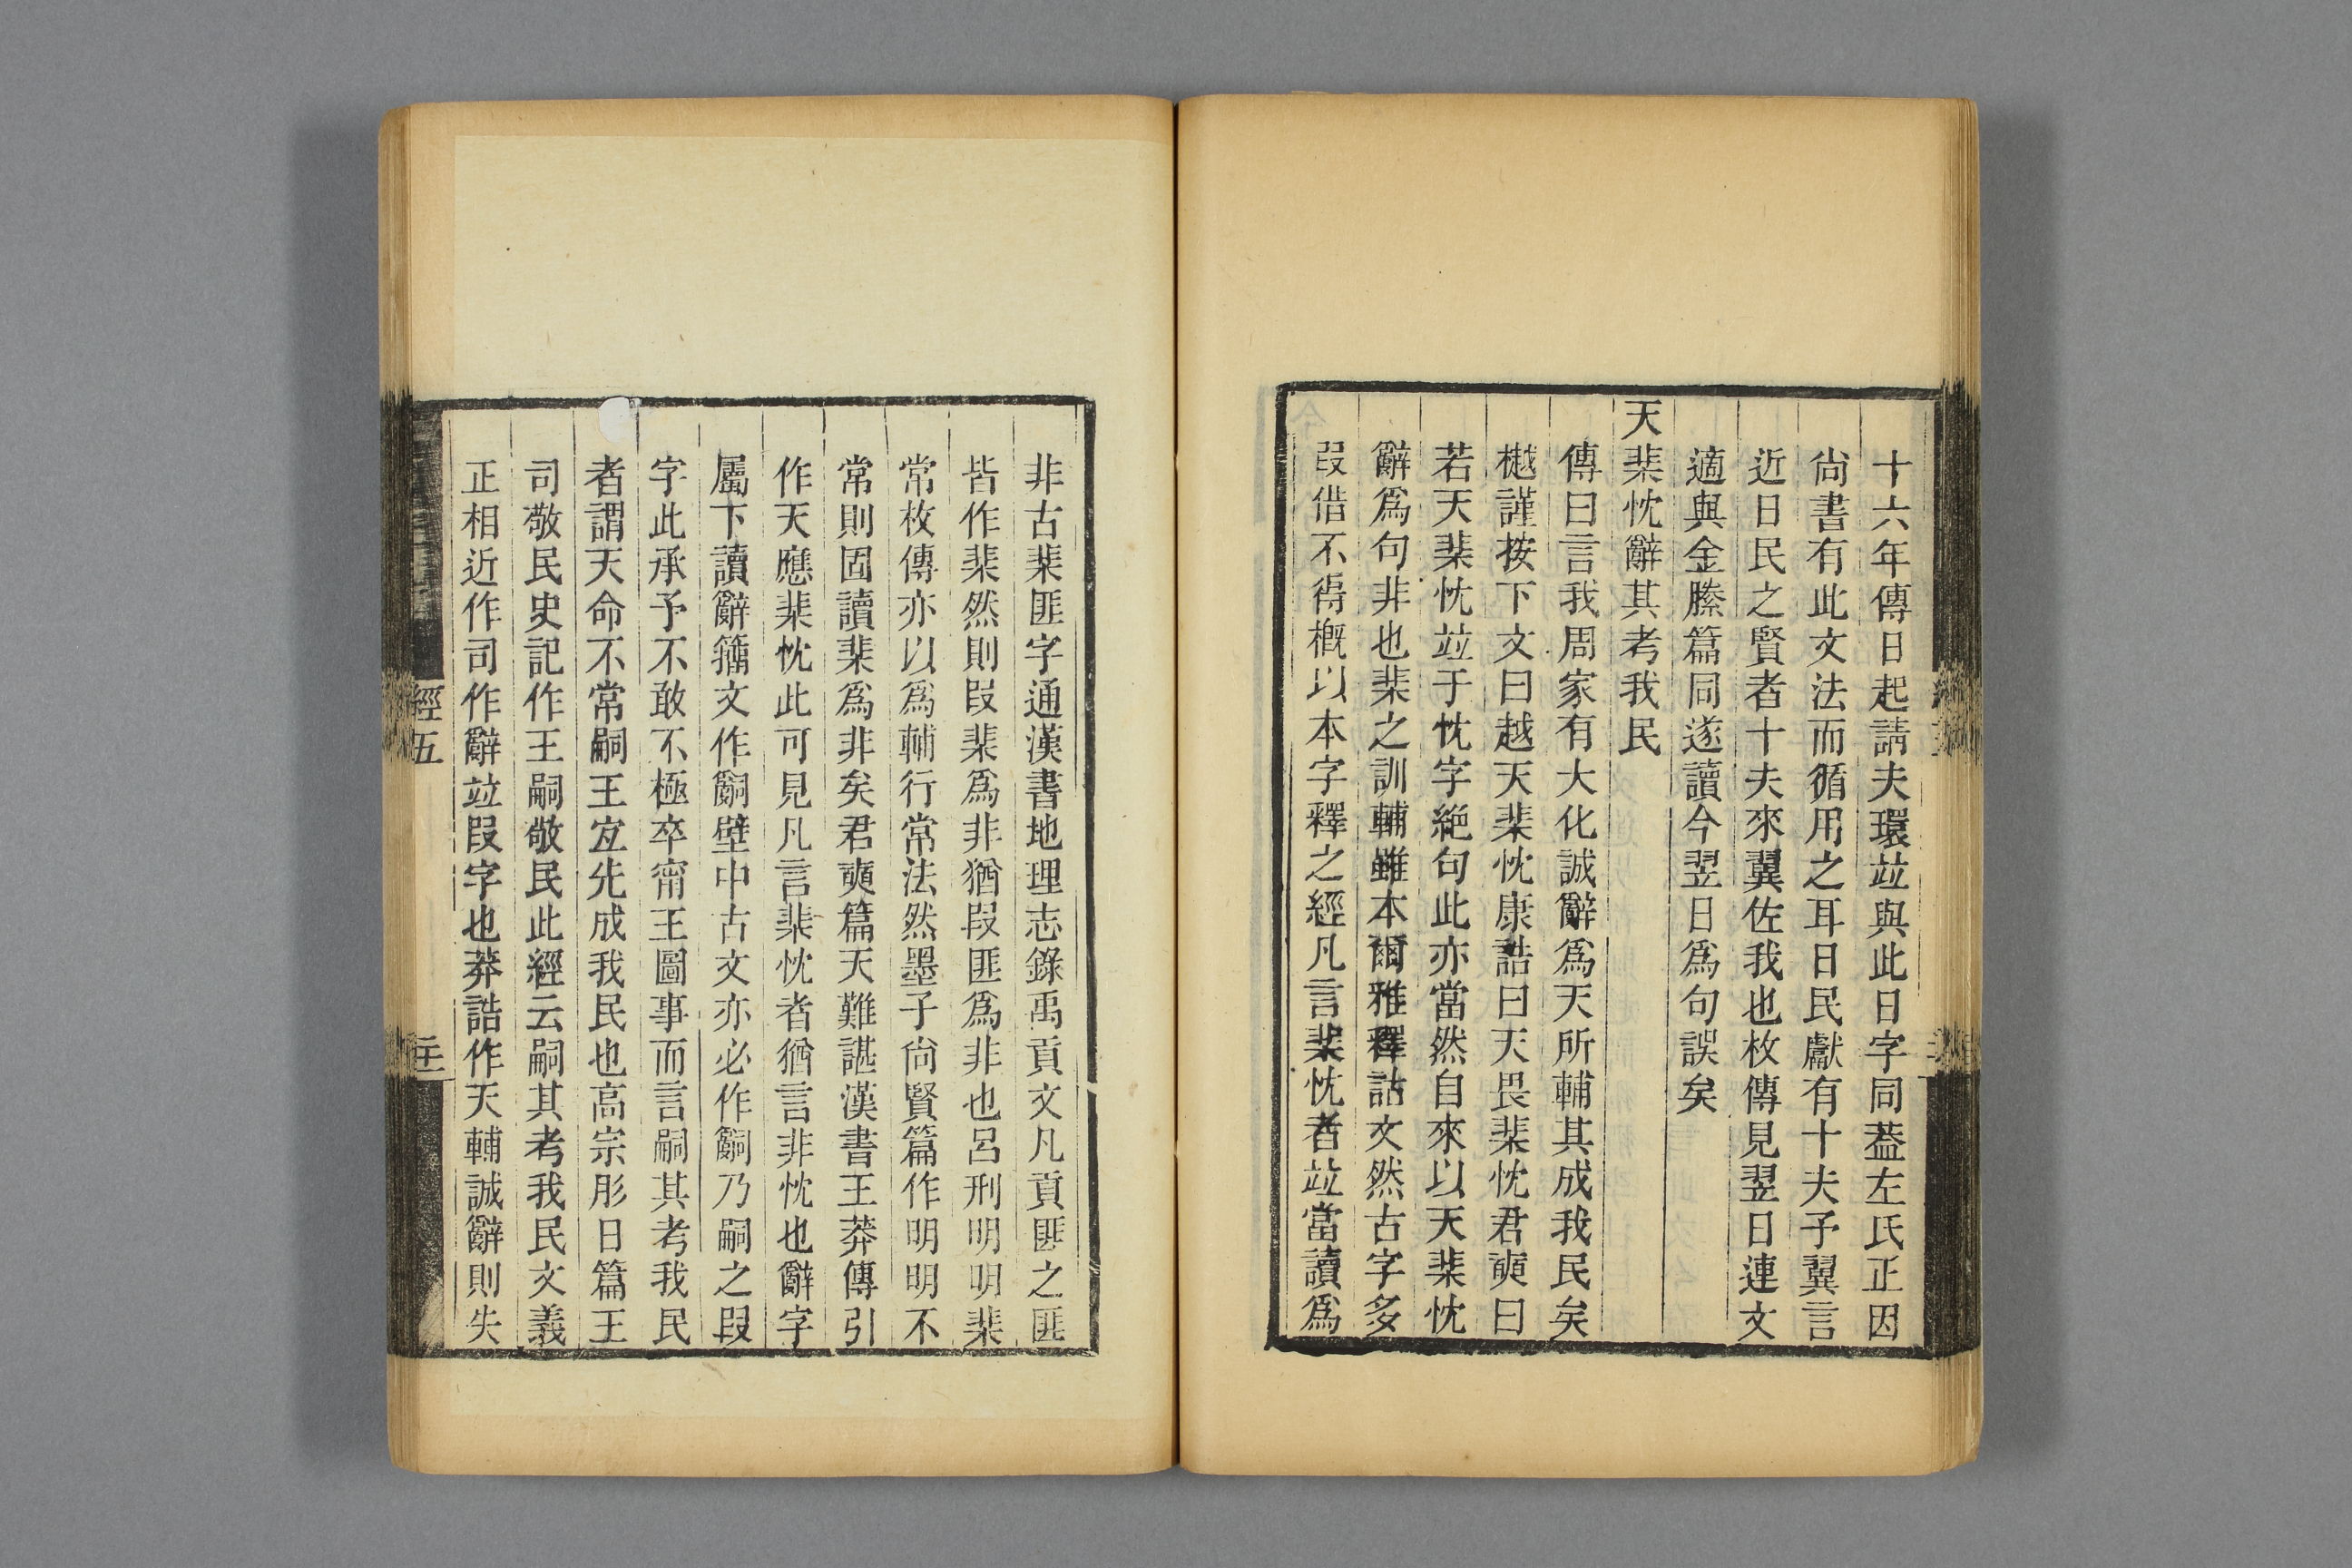 十六年傳日起請夫環竝與此日字同葢左氏正因
尙書有此文法而循用之耳日民獻有十夫予翼言
近日民之賢者十夫來翼佐我也枚傳見翌日連文
適與金縢篇同遂讀今翌日爲句誤矣
天棐忱辭其考我民
傳曰言我周家有大化誠辭爲天所輔其成我民矣
樾謹按下文曰越天棐忱康誥曰天畏棐忱君奭曰
若天棐忱竝于忱字絶句此亦當然自來以天棐忱
辭爲句非也棐之訓輔雖本爾雅釋詁文然古字多
叚借不得槪以本字釋之經凡言棐忱者竝當讀爲
非古棐匪字通漢書地理志錄禹貢文凡貢匪之匪
皆作棐然則叚棐爲非猶叚匪爲非也呂刑明明棐
常枚傳亦以爲輔行常法然墨子尙賢篇作明明不
常則固讀棐爲非矣君奭篇天難諶漢書王莽傳引
作天應棐忱此可見凡言棐忱者猶言非忱也辭字
屬下讀辭籒文作嗣壁中古文亦必作嗣乃嗣之叚
字此承予不敢不極卒甯王圖事而言嗣其考我民
者謂天命不常嗣王宜先成我民也高宗肜日篇王
司敬民史記作王嗣敬民此經云嗣其考我民文義
正相近作司作辭竝叚字也莽誥作天輔誠辭則失
經五